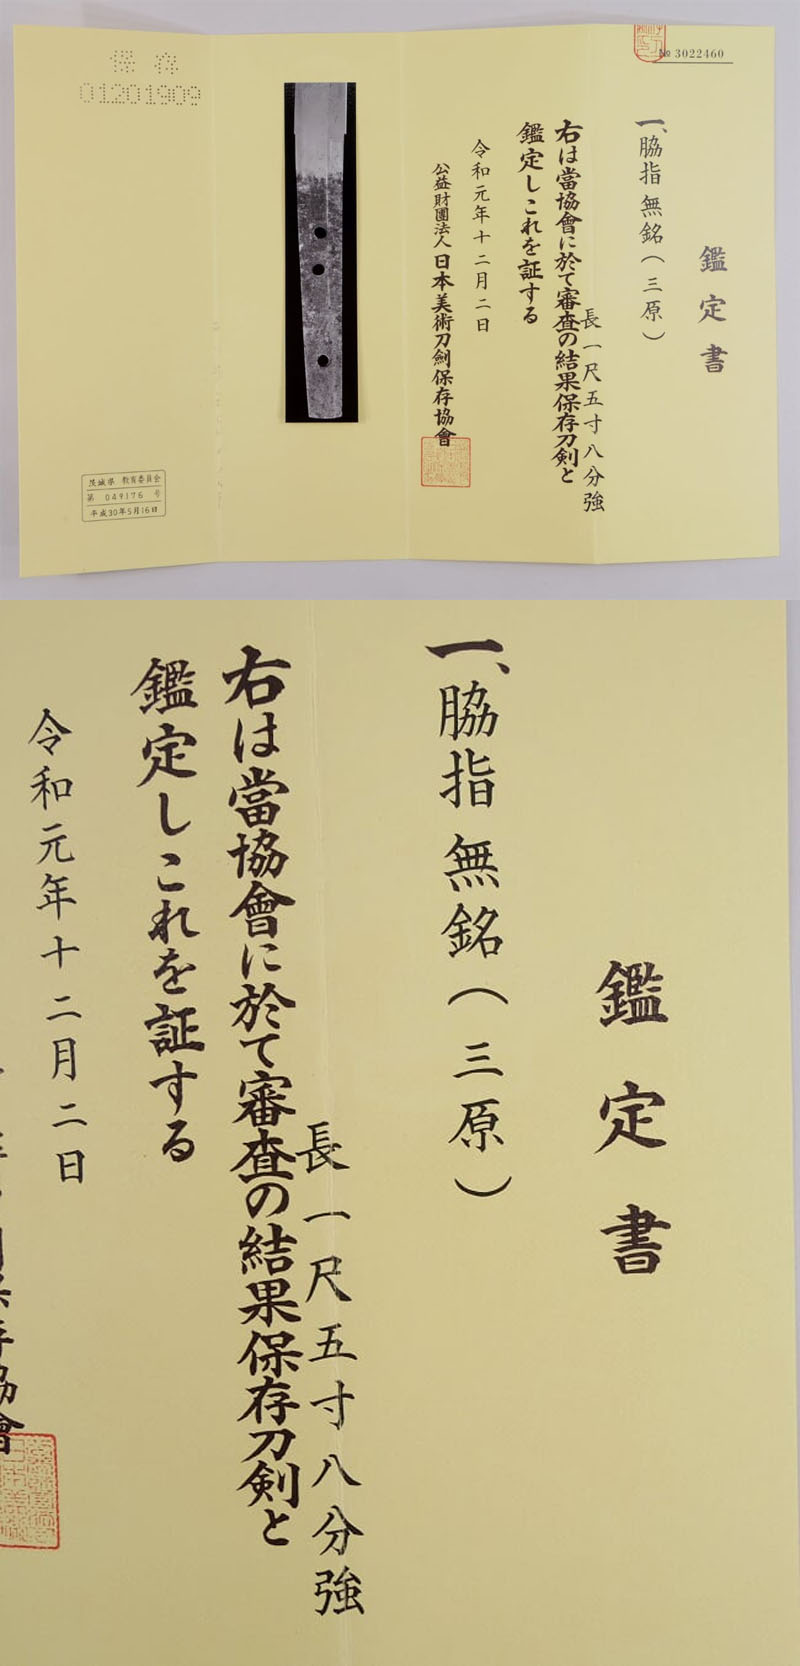 № 3022460
鑑定書
一、脇指 無銘(三原)
長一尺五寸八分強
右は當協會に於て審査の結果保存刀剣と
鑑定しこれを証する
令和元年十二月二日
公益財團法人日本美術刀劍保存協會
保存
01201909
茨城県 教育委員会
第 049176 号
平成30年5月16日
鑑定書
一、脇指 無銘(三原)
長一尺五寸八分強
右は當協會に於て審査の結果保存刀剣と
鑑定しこれを証する
令和元年十二月二日